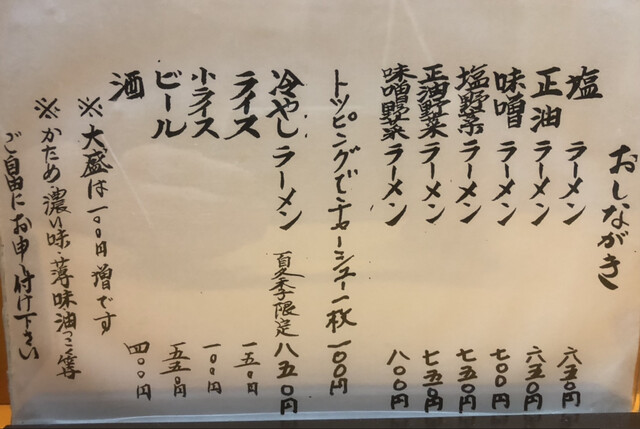 おしながき
塩ラーメン 六五〇円
正油ラーメン 六五〇円
味噌ラーメン 七〇〇円
塩野菜ラーメン 七五〇円
正油野菜ラーメン 七五〇円
味噌野菜ラーメン 八〇〇円
トッピングでチャーシュー一枚 一〇〇円
冷やしラーメン 夏季限定 八五〇円
ライス 一五〇円
小ライス 一〇〇円
ビール 五五〇円
酒 四〇〇円
※大盛は一〇〇円増です
※かため・濃い味・薄味油っこ等
ご自由にお申し付け下さい